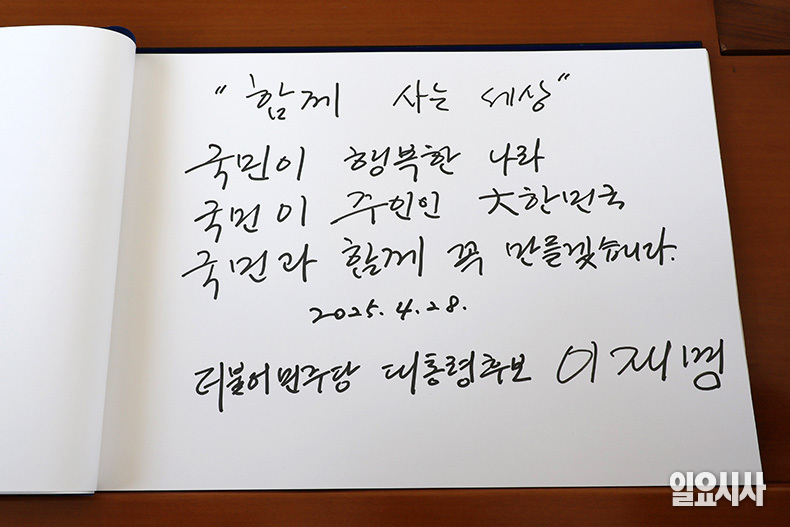 "함께 사는 세상"
국민이 행복한 나라
국민이 주인인 大한민국
국민과 함께 꼭 만들겠습니다.
2025. 4. 28.
더불어민주당 대통령후보 이재명
일요시사